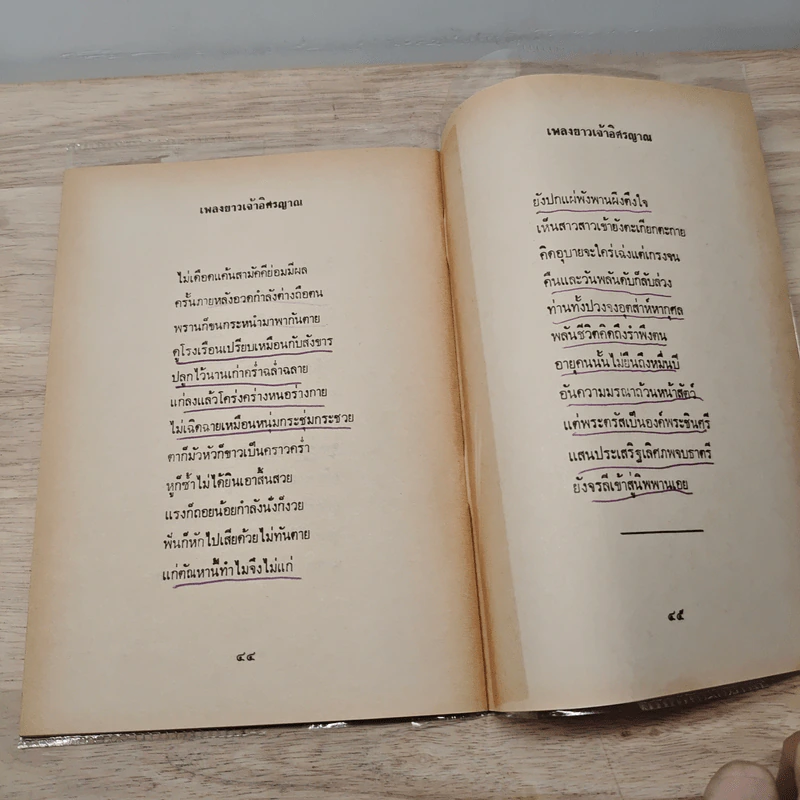 เพลงยาวเจ้าอิศรญาณ
ไม่เดือดแค้นสามัคคีย่อมมีผล
ครั้นภายหลังอวดกำลังต่างถือตน
พรานก็ขนกระหน่ำมาพากันตาย
ดูโรงเรือนเปรียบเหมือนกับสังขาร
ปลูกไว้นานเก่าคร่ำฉล่ำฉลาย
แก่ลงแล้วโคร่งคร่างหนอร่างกาย
ไม่เฉิดฉายเหมือนหนุ่มกระชุ่มกระชวย
ตาก็มัวหัวก็ขาวเป็นคราวคร่ำ
หูก็ซ้ำไม่ได้ยินเอาสิ้นสวย
แรงก็ถอยน้อยกำลังนั่งก็งวย
ฟันก็หักไปเสียด้วยไม่ทันตาย
แก่ตัณหานี้ทำไมจึงไม่แก่
๔๔
เพลงยาวเจ้าอิศรญาณ
ยังปกแผ่พังพานผึงตึงใจ
เห็นสาวสาวเข้ายังตะเกียกตะกาย
คิดอุบายจะใคร่เฉ่งแต่เกรงจน
คืนและวันพลันดับก็ลับล่วง
ท่านทั้งปวงจงอุตส่าห์หากุศล
พลันชีวิตคิดถึงรำพึงตน
อายุคนนั้นไม่ยืนถึงหมื่นปี
อันความมรณาถ้วนหน้าสัตว์
แต่พระตรัสเป็นองค์พระชินศรี
แสนประเสริฐเลิศภพจบธาตรี
ยังจรลีเข้าสู่นิพพานเอย
๔๕